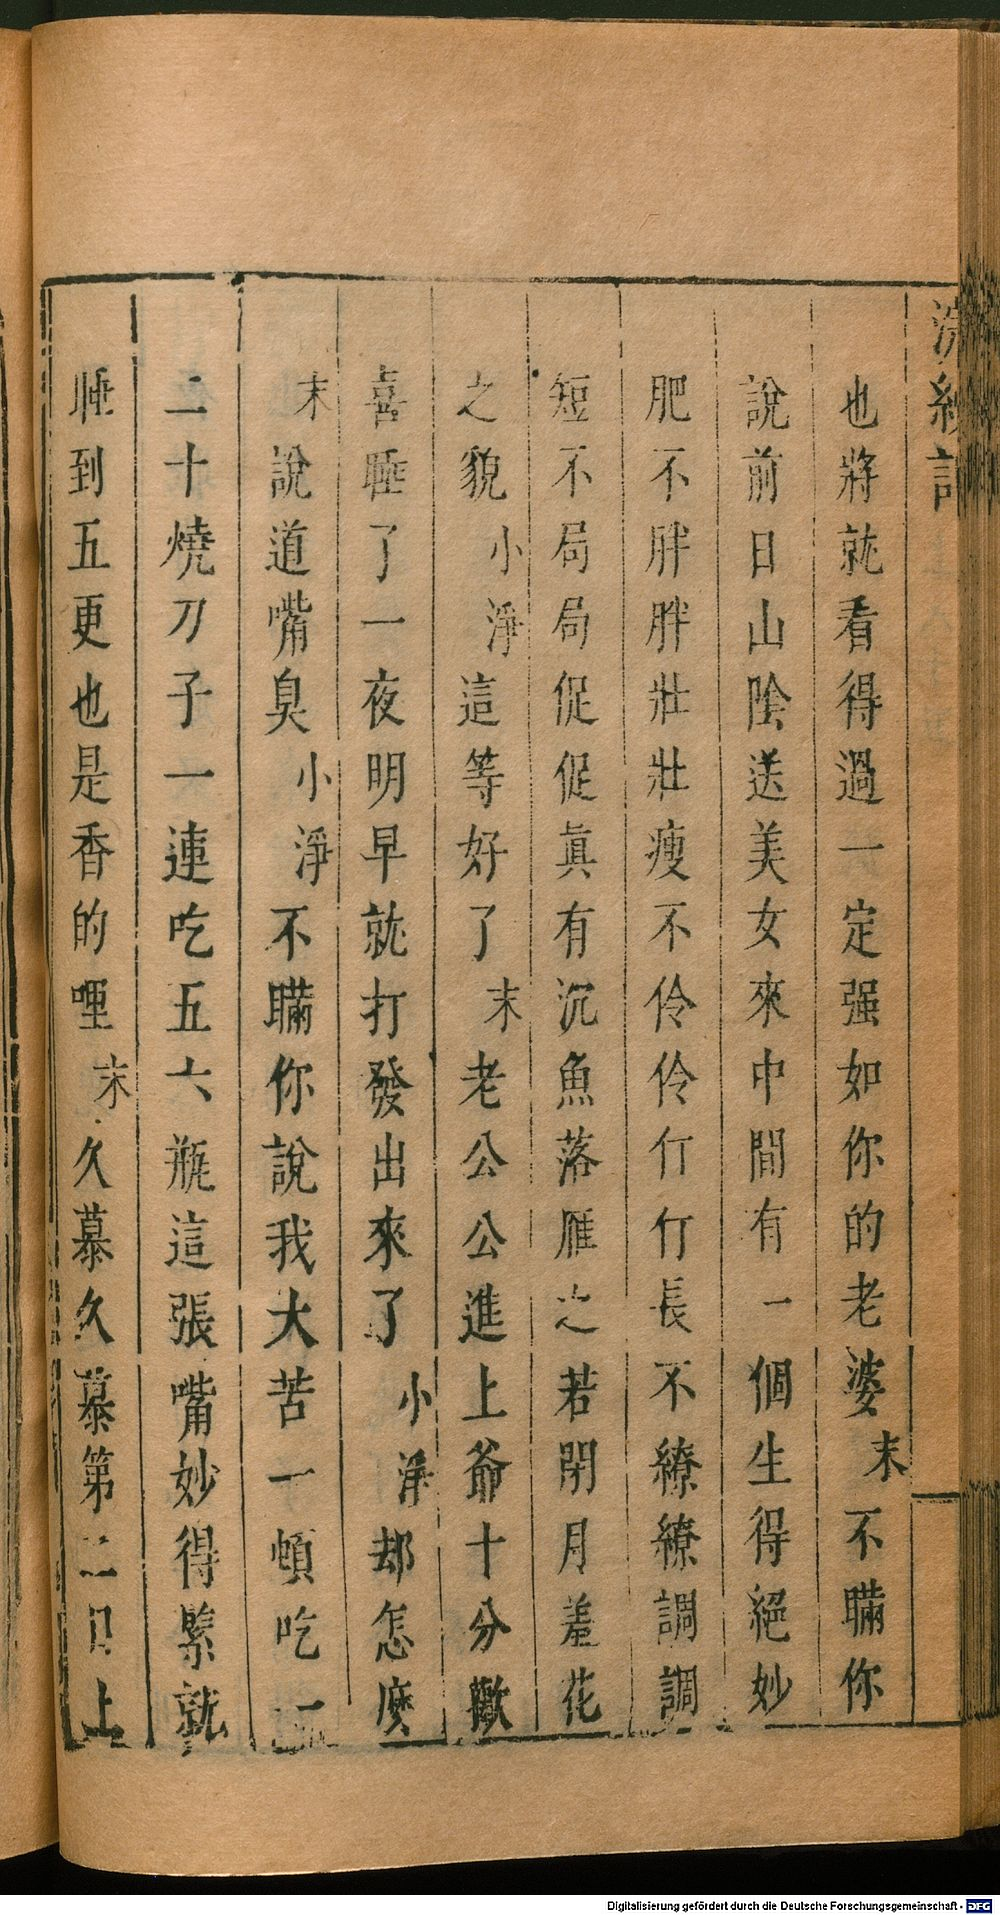 浣紗記
也將就看得過一定强如你的老婆末不瞞你
說前日山陰送美女來中間有一個生得絕妙
肥不胖胖壯壯瘦不伶伶仃仃長不繚繚調調
短不局局促促眞有沉魚落雁之若閉月羞花
之貌小淨這等好了末老公公進上爺十分歡
喜睡了一夜明早就打發出來了小淨却怎麽
末說道嘴臭小淨不瞞你說我大苦一頓吃一
二十燒刀子一連吃五六瓶這張嘴妙得緊就
睡到五更也是香的哩末久慕久慕第二日上
Digitalisierung gefördert durch die Deutsche Forschungsgemeinschaft - DFG